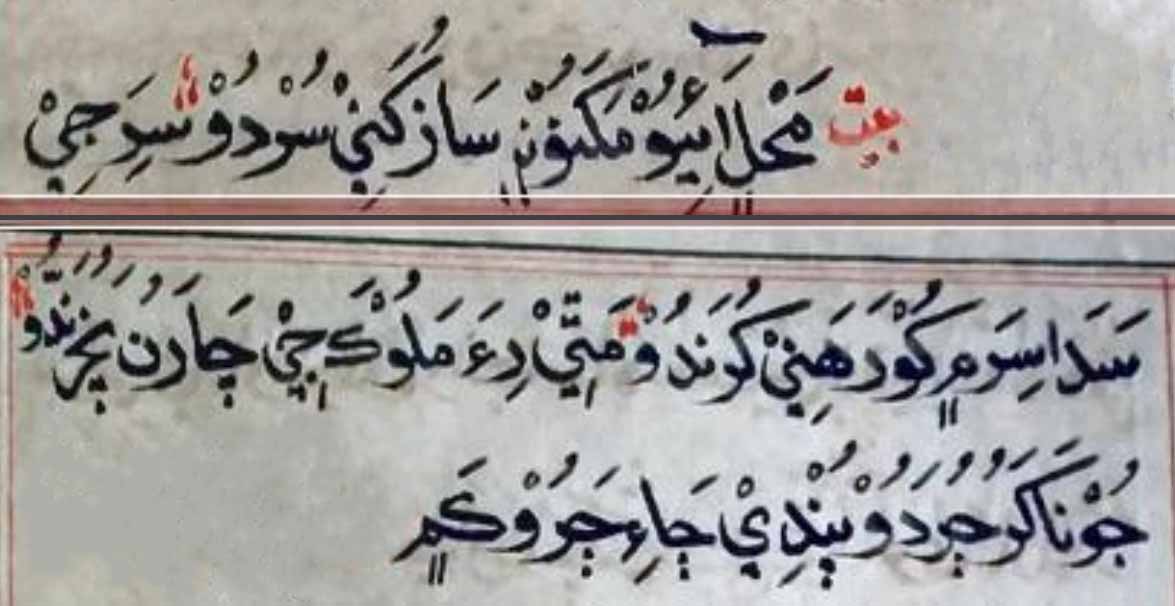 بيت مَحْلِ آئِيُوْ مَکَنوُنْ سَازُ کَنِيْ سُرْدوُ سِرَ جِيْ
سَدَا سِرَمِ کُوْرَهَنِيْ کُوندُوْ مَٿِيْ دِءَ مَلُوْڪَ جِيْ چَارَنُ چُرَندُّو
جُوْناکَرُ جُرَدُوْ پُنْدِيْ جَاءِ جَرُوْڪَمِ